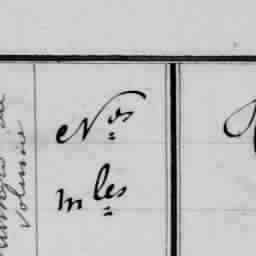 Numéro du
volume
Nos
mles